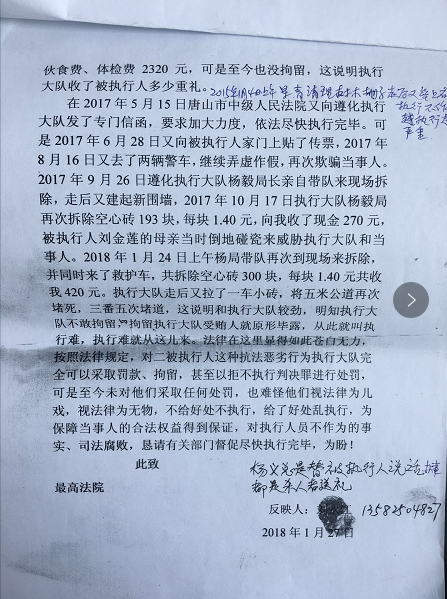 伙食费、体检费 2320 元，可是至今也没拘留，这说明执行
大队收了被执行人多少重礼。
在 2017 年 5 月 15 日唐山市中级人民法院又向遵化执行
大队发了专门信函，要求加大力度，依法尽快执行完毕。可
是 2017 年 6 月 28 日又向被执行人家门上贴了传票，2017 年
8 月 16 日又去了两辆警车，继续弄虚作假，再次欺骗当事人。
2017 年 9 月 26 日遵化执行大队杨毅局长亲自带队来现场拆
除，走后又建起新围墙，2017 年 10 月 17 日执行大队杨毅局
再次拆除空心砖 193 块，每块 1.40 元，向我收了现金 270 元，
被执行人刘金莲的母亲当时倒地碰瓷来威胁执行大队和当
事人。2018 年 1 月 24 日上午杨局带队再次到现场来拆除，
并同时来了救护车，共拆除空心砖 300 块，每块 1.40 元共收
我 420 元。执行大队走后又拉了一车小砖，将五米公道再次
堵死，三番五次堵道，这说明和执行大队较劲，明知执行大
队不敢拘留，拘留执行大队受贿人就原形毕露，从此就叫执
行难，执行难就从这儿来。法律在这里显得如此苍白无力，
按照法律规定，对二被执行人这种抗法恶劣行为执行大队完
全可以采取罚款、拘留，甚至以拒不执行判决罪进行处罚，
可是至今未对他们采取任何处罚，也难怪他们视法律为儿
戏，视法律为无物，不给好处不执行，给了好处乱执行，为
保障当事人的合法权益得到保证，对执行人员不作为的事
实、司法腐败，恳请有关部门督促尽快执行完毕，为盼！
此致
最高法院
杨义总是替被执行人说话
都是杀人者送礼
反映人：
13582504827
2018 年 1 月 27 日